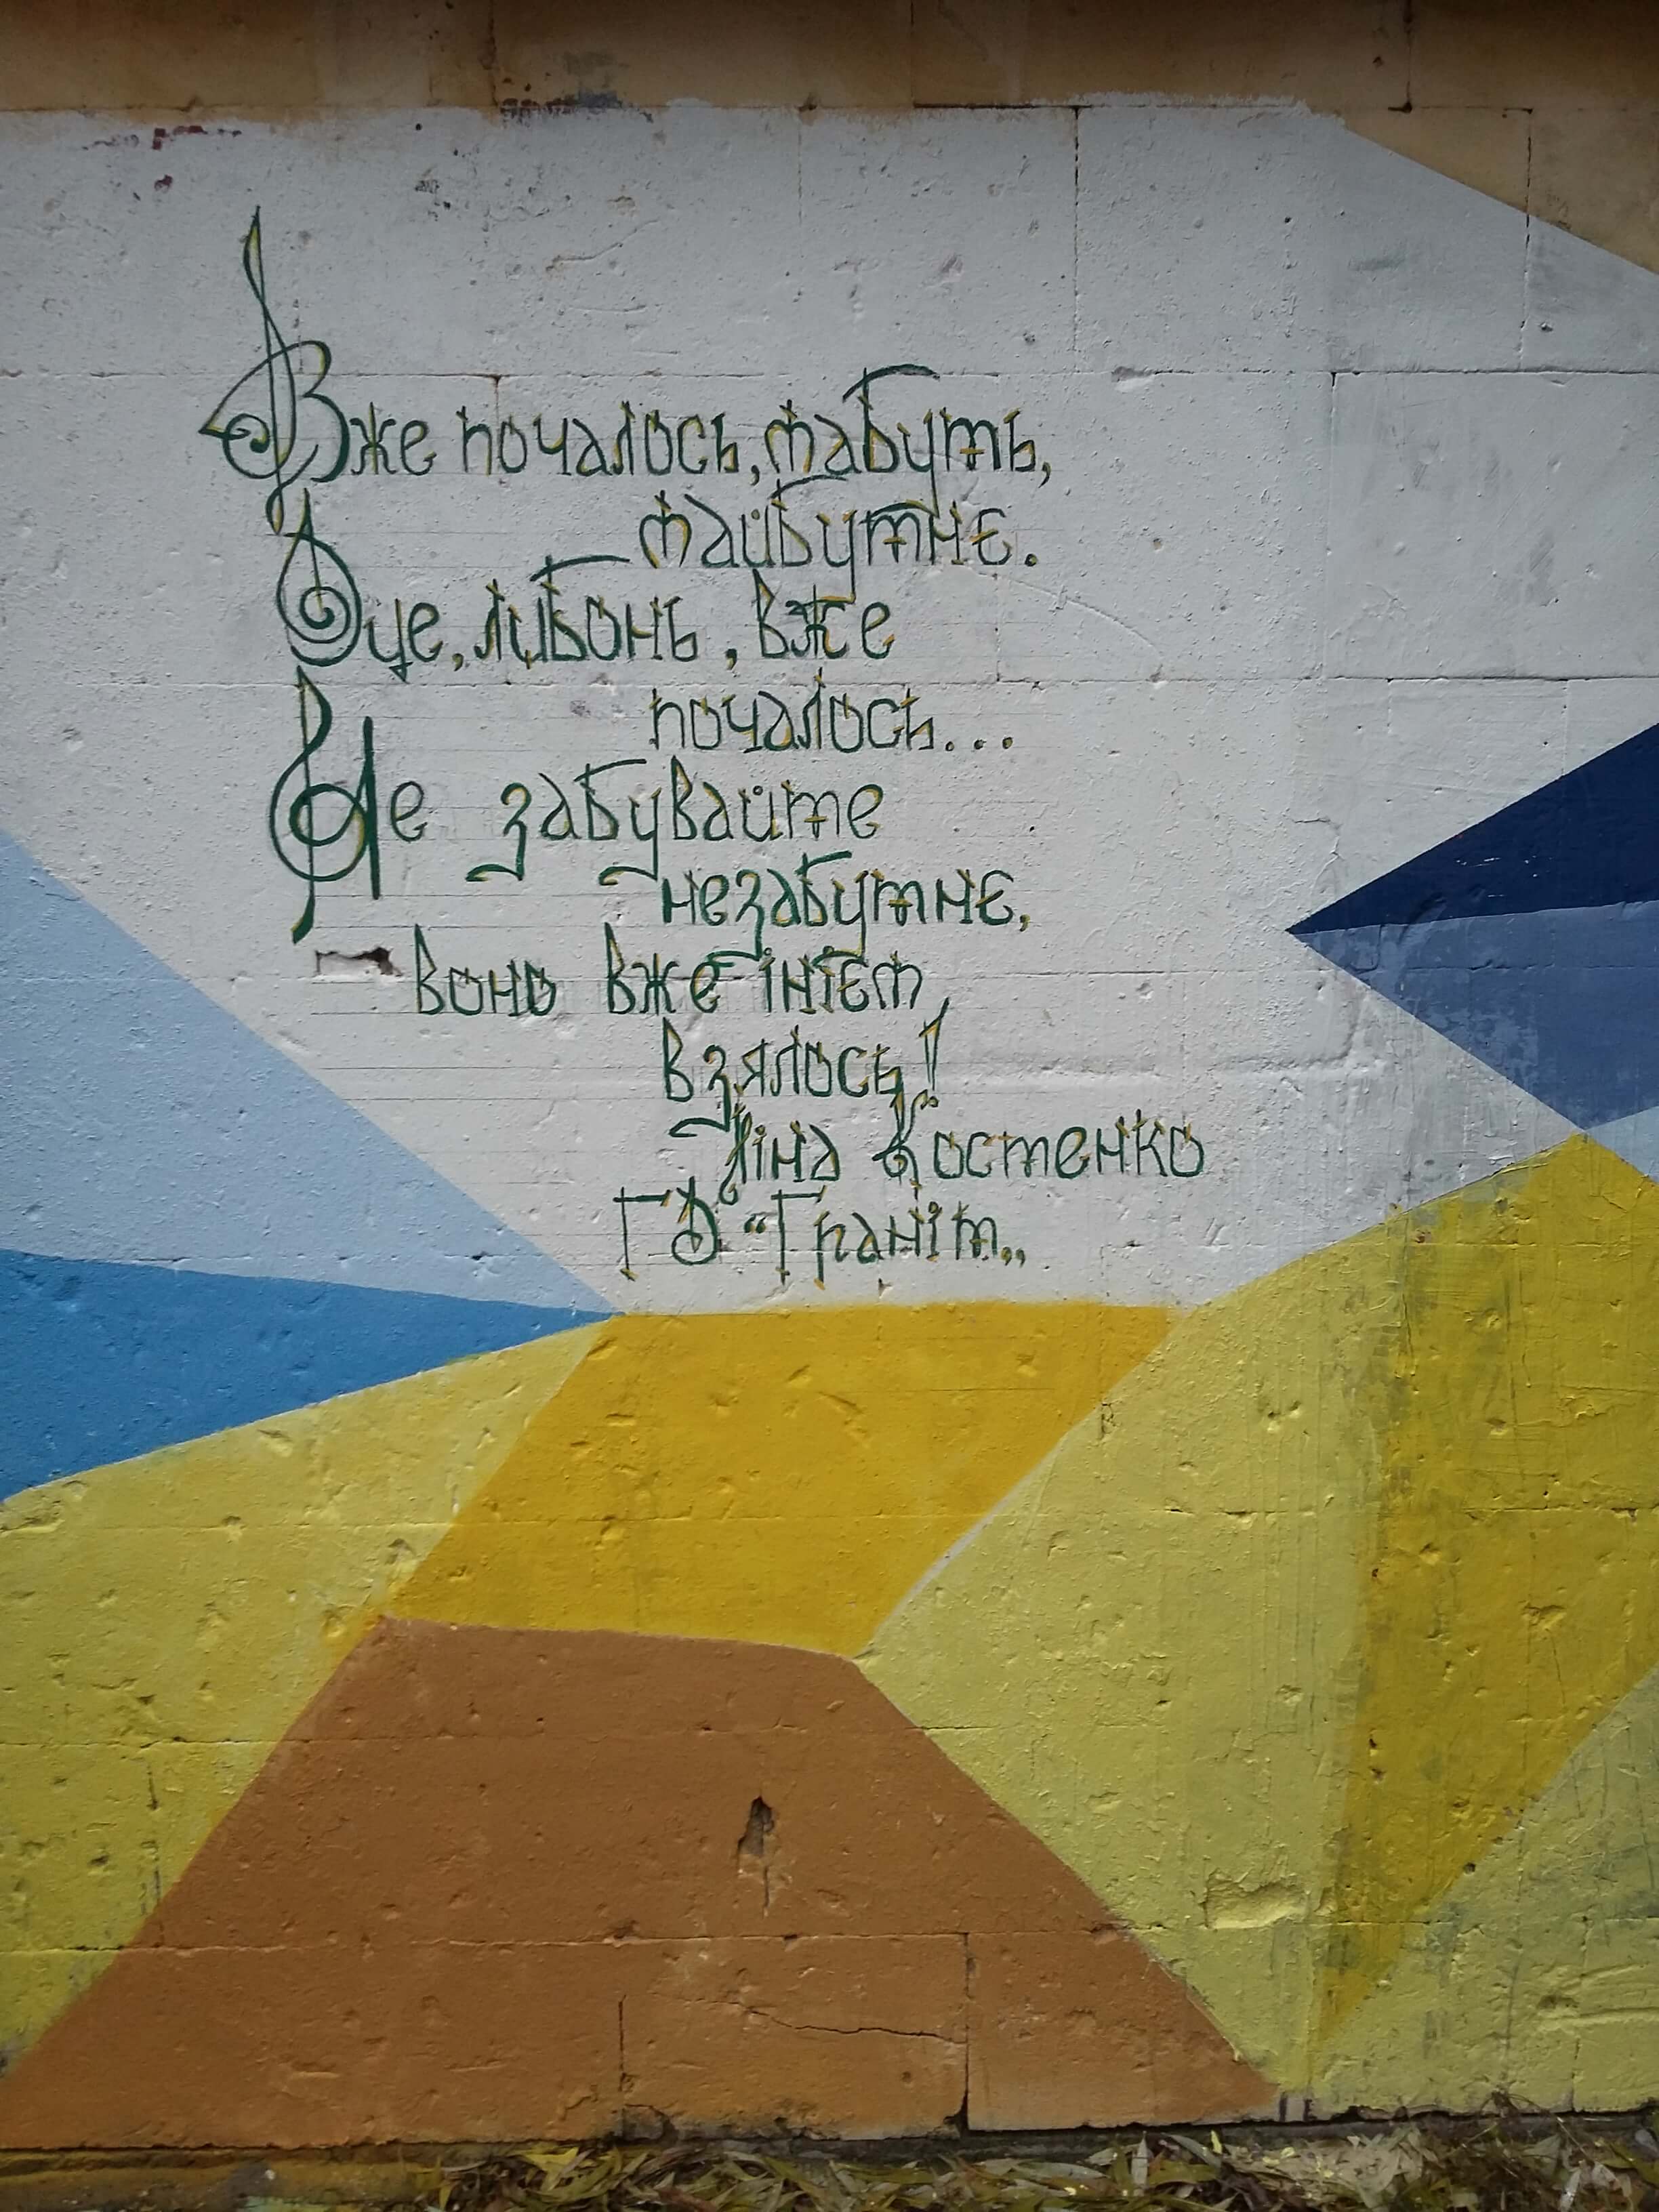 Вже почалось, мабуть,
майбутнє.
Оце, либонь, вже
почалось...
Не забувайте
незабутнє,
воно вже інієм
взялось!
Ліна Костенко
ГО "Граніт„